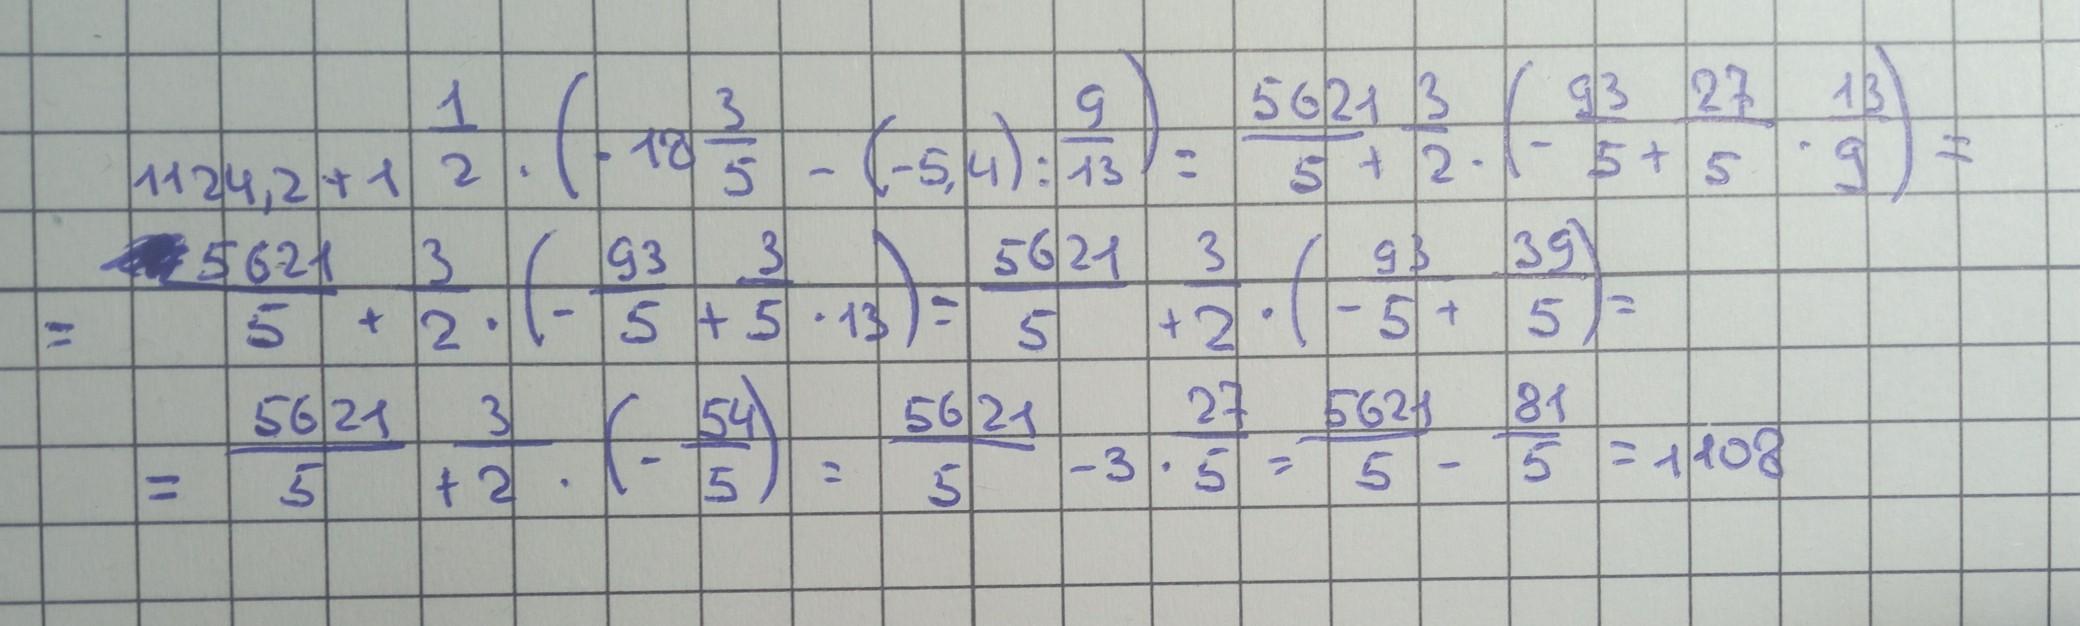 1124,2 + 1 1/2 · (-18 3/5 - (-5,4) : 9/13) = 5621/5 + 3/2 · (- 93/5 + 27/5 · 13/9) =
= 5621/5 + 3/2 · (- 93/5 + 3/5 · 13) = 5621/5 + 3/2 · (- 93/5 + 39/5) =
= 5621/5 + 3/2 · (- 54/5) = 5621/5 - 3 · 27/5 = 5621/5 - 81/5 = 1108